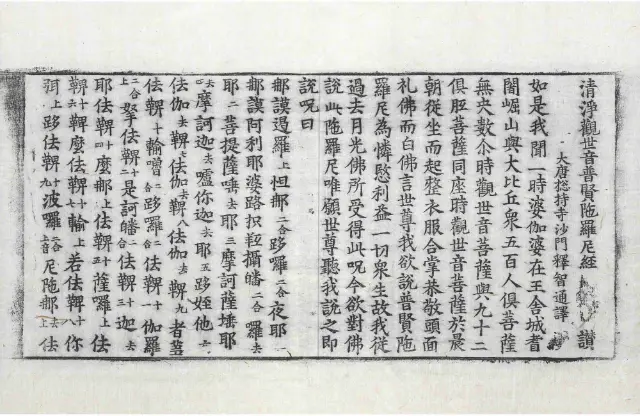 清淨觀世音普賢陁羅尼經 讃
大唐捴持寺沙門釋智通譯
如是我聞一時婆伽婆在王舍城耆
闍崛山與大比丘衆五百人俱菩薩
無央數尒時觀世音菩薩與九十二
俱胝菩薩同座時觀世音菩薩於晨
朝從坐而起整衣服合掌恭敬頭面
礼佛而白佛言世尊我欲說普賢陁
羅尼為憐愍利益一切衆生故我從
過去月光佛所受得此呪今欲對佛
說此陁羅尼唯願世尊聽我說之即
說呪曰
那謨曷羅上怛那二合跢羅二合夜耶一
那謨阿利耶婆路枳𤙖攝皤二合羅去
耶二菩提薩埵去耶三摩訶薩埵耶
四去摩訶迦去嚧你迦去耶五跢姪他六去
佉伽去鞞七佉伽去鞞八佉伽去鞞九者蒭
佉鞞十輸嚕二合跢羅二合佉鞞一伽羅
二合拏佉鞞十二是訶皤二合佉鞞十三迦去
耶佉鞞十四麼那上佉鞞十五薩羅上佉
鞞十六鞞麼佉鞞十七輸上若佉鞞十八你
弭上跢佉鞞十九波羅二合尼陁那去上佉